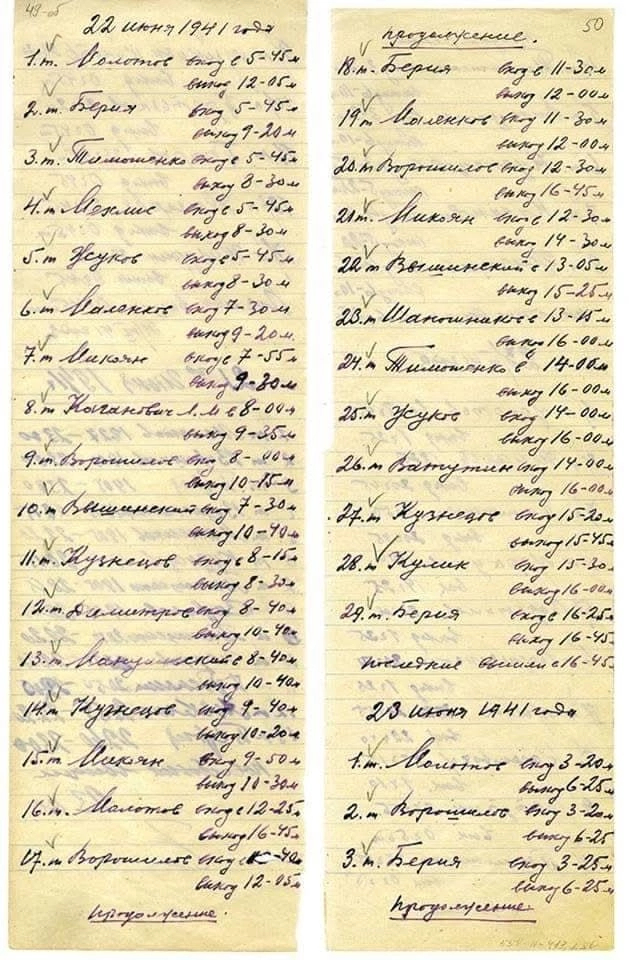 49-об
22 июня 1941 года
1. т. Молотов вход в 5-45м
выход 12-05м
2. т. Берия вход 5-45м
выход 9-20м
3. т. Тимошенко вход в 5-45м
выход 8-30м
4. т. Мехлис вход в 5-45м
выход 8-30м
5. т. Жуков вход в 5-45м
выход 8-30м
6. т. Маленков вход 7-30м
выход 9-20м.
7. т. Микоян вход в 7-55м
выход 9-30м
8. т. Каганович Л. М в 8-00м
выход 9-35м
9. т. Ворошилов вход 8-00м
выход 10-15м
10. т. Вышинский вход 7-30м
выход 10-40м
11. т. Кузнецов вход в 8-15м
выход 8-30м
12. т. Димитров вход 8-40м
выход 10-40м
13. т. Мануильский в 8-40м
выход 10-40м
14. т. Кузнецов вход 9-40м
выход 10-20м
15. т. Микоян вход 9-50м
выход 10-30м
16. т. Молотов вход в 12-25м
выход 16-45м
17. т. Ворошилов вход в 40м
выход 12-05м
продолжение.
50
продолжение.
18. т. Берия вход в 11-30м
выход 12-00м
19 т Маленков вход 11-30м
выход 12-00м
20. т Ворошилов вход 12-30м
выход 16-45м
21 т. Микоян вход в 12-30м
выход 14-30м
22. т Вышинский в 13-05м
выход 15-25м
23. т Шапошников в 13-15м
выход 16-00м
24. т Тимошенко в 14-00м
выход 16-00м
25. т Жуков вход 14-00м
выход 16-00м
26. т Ватутин вход 14-00м
выход 16-00м
27. т Кузнецов вход 15-20м
выход 15-45м
28. т Кулик вход 15-30м
выход 16-00м
29. т. Берия вход 16-25м
выход 16-45м
Последние вышли в 16-45м
23 июня 1941 года
1. т. Молотов вход 3-20м
выход 6-25м
2. т Ворошилов вход 3-20м
выход 6-25
3. т. Берия вход 3-25м
выход 6-25м
продолжение